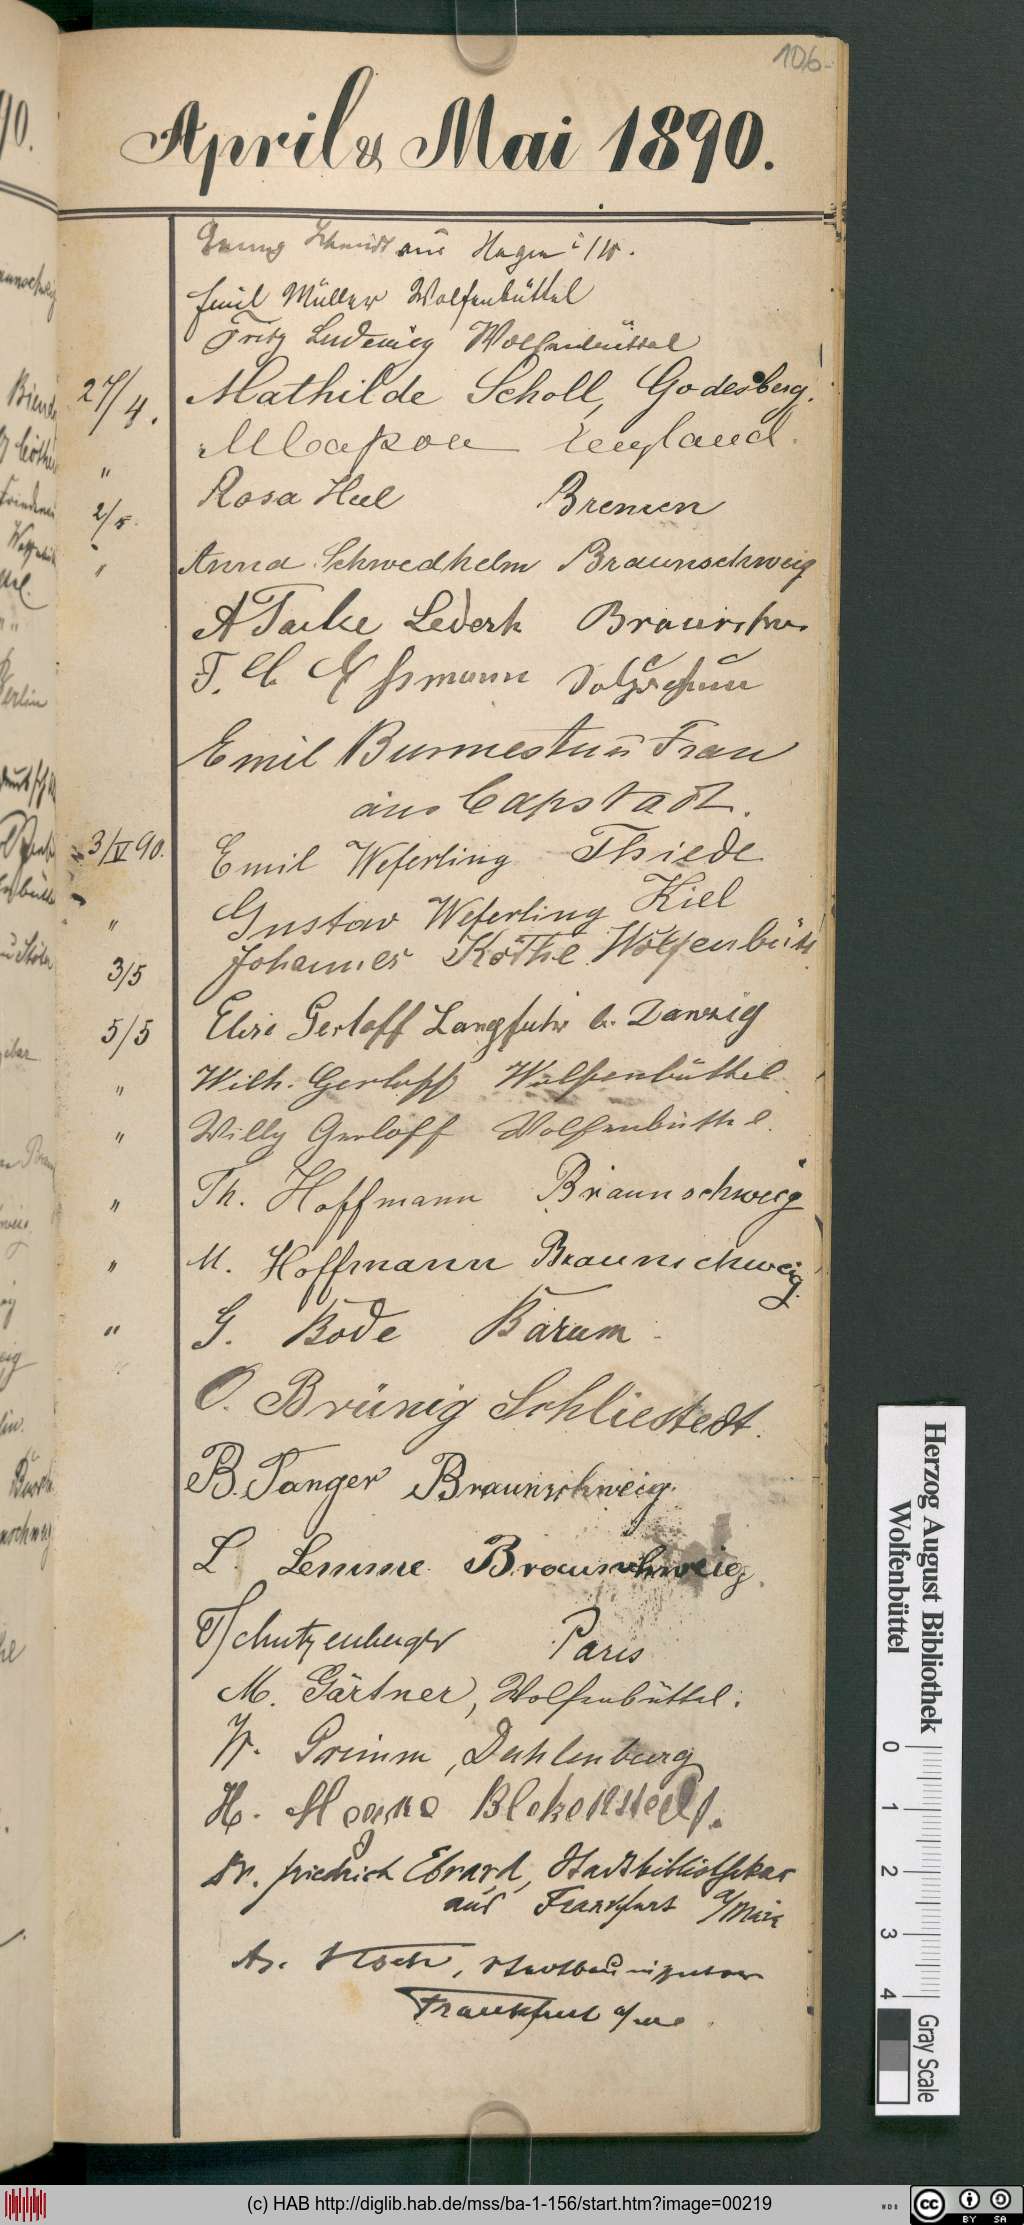 106.
April & Mai 1890.
Schmidt aus Hagen i/W.
Emil Müller Wolfenbüttel
Fritz Ludewig Wolfenbüttel
27/4. Mathilde Scholl, Godesberg.
" England.
2/5. Rosa Bremen
" Anna Schwedhelm Braunschweig
A Tacke
F. C. Essmann
Emil Burmester u Frau
aus Capstadt.
3/V 90. Emil Weferling Thiede
" Gustav Weferling Kiel
3/5 Johannes Köthe Wolfenbütt
5/5 Elise Gerloff Langfuhr b. Danzig
" Wilh. Gerloff Wolfenbüttel
" Willy Gerloff Wolfenbüttel.
" Th. Hoffmann Braunschweig
" M. Hoffmann Braunschweig.
" G. Bode Barum
O. Brünig Schliestedt.
B. Panger Braunschweig.
L. Lemme Braunschweig.
Schutzenberger Paris
M. Gärtner, Wolfenbüttel.
W. Grimm, Dahlenburg
H.
Dr. Friedrich Ebrard, Stadtbibliothekar
aus Frankfurt a/Main
Stadtbauinspector
Frankfurt a/M
Herzog August Bibliothek
Wolfenbüttel
0 1 2 3 4
Gray Scale
(c) HAB http://diglib.hab.de/mss/ba-1-156/start.htm?image=00219
cc BY SA